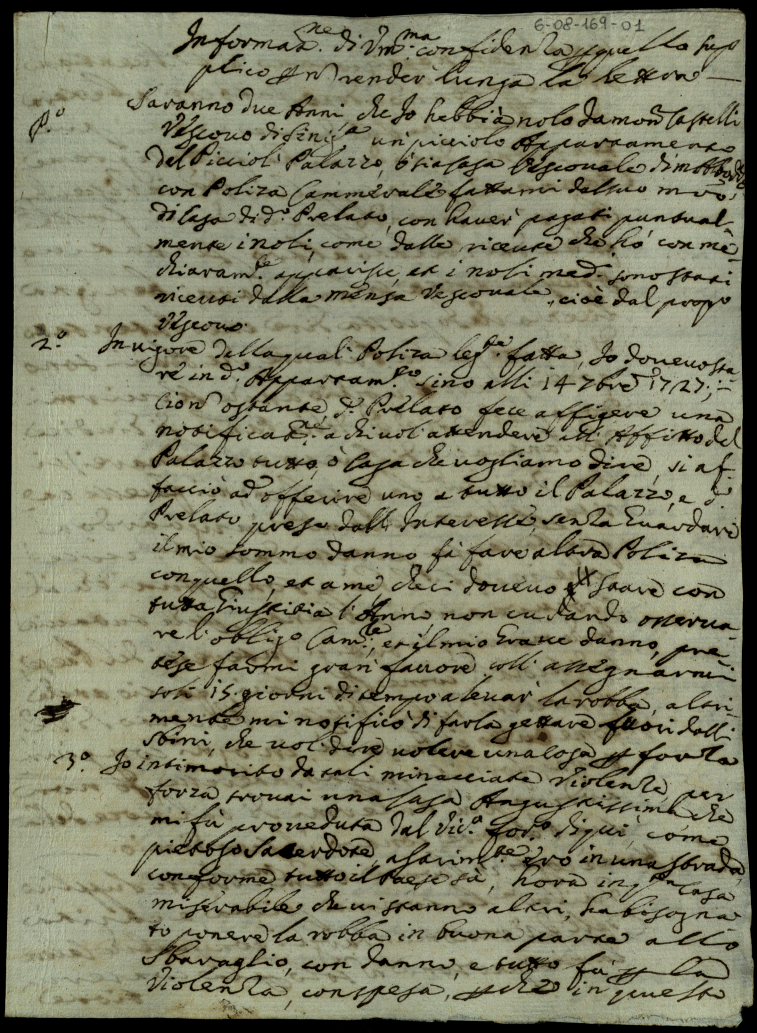 6-08-169-01
Informaz.ne di Vm. ma confidenza p quello sup
plico p nō render lunga la lettura
P.o Saranno due Anni che Io hebbi à nolo da mons Castelli
Vescovo di un picciolo Appartamento
del Piccioli Palazzo, ò sia Casa Vescovale di
con Poliza Cammerale fattami dal suo mrō
di Casa di d.o Prelato, con haver pagati puntual
mente i noli, come dalle ricevute che hò con mè
chiaram.te apparisce, et i noli med. sono stati
ricevuti dalla mensa Vescovale, cioè dal propo
Vescovo.
2.o In vigore della qual Poliza leg.te fatta, Io dovevo sta
re in d.o Appartam.to sino alli 14 7bre 1727;
ciò nō ostante, d.o Prelato fece affigere una
notificaz.ne a chi vol attendere all Affitto del
Palazzo tutto, ò Casa che vogliamo dire, si af
facciò ad offerire uno a tutto il Palazzo, e d.o
Prelato preso dall Interesse, senza Guardare
il mio sommo danno fà fare altra Poliza
con quello, et a me che ci dovevo stare con
tutta Giustitia l'Anno, non curando osserva
re l'obligo Cam.le, et il mio Grave danno, pre
tese farmi gran favore coll assegnarmi
soli 15 giorni di tempo a levar la robba, altri
mente mi notificò di farla gettare fuori dalli
sbirri, che vol dire volere una Cosa p forza
3.o Io intimorito da tali minacciate violenze per
forza trovai una Casa Angustissima che
mi fù proveduta dal Vic.o for.o di qui, come
pietoso Sacerdote, altrim.te ero in una strada,
conforme tutto il Paese sà, hora in Casa
miserabile che vi stanno altri, hà bisogna
to ponere la robba in buona parte allo
Sbaraglio, con danno, e tutto fù p la
Violenza, con spesa, p che in questo